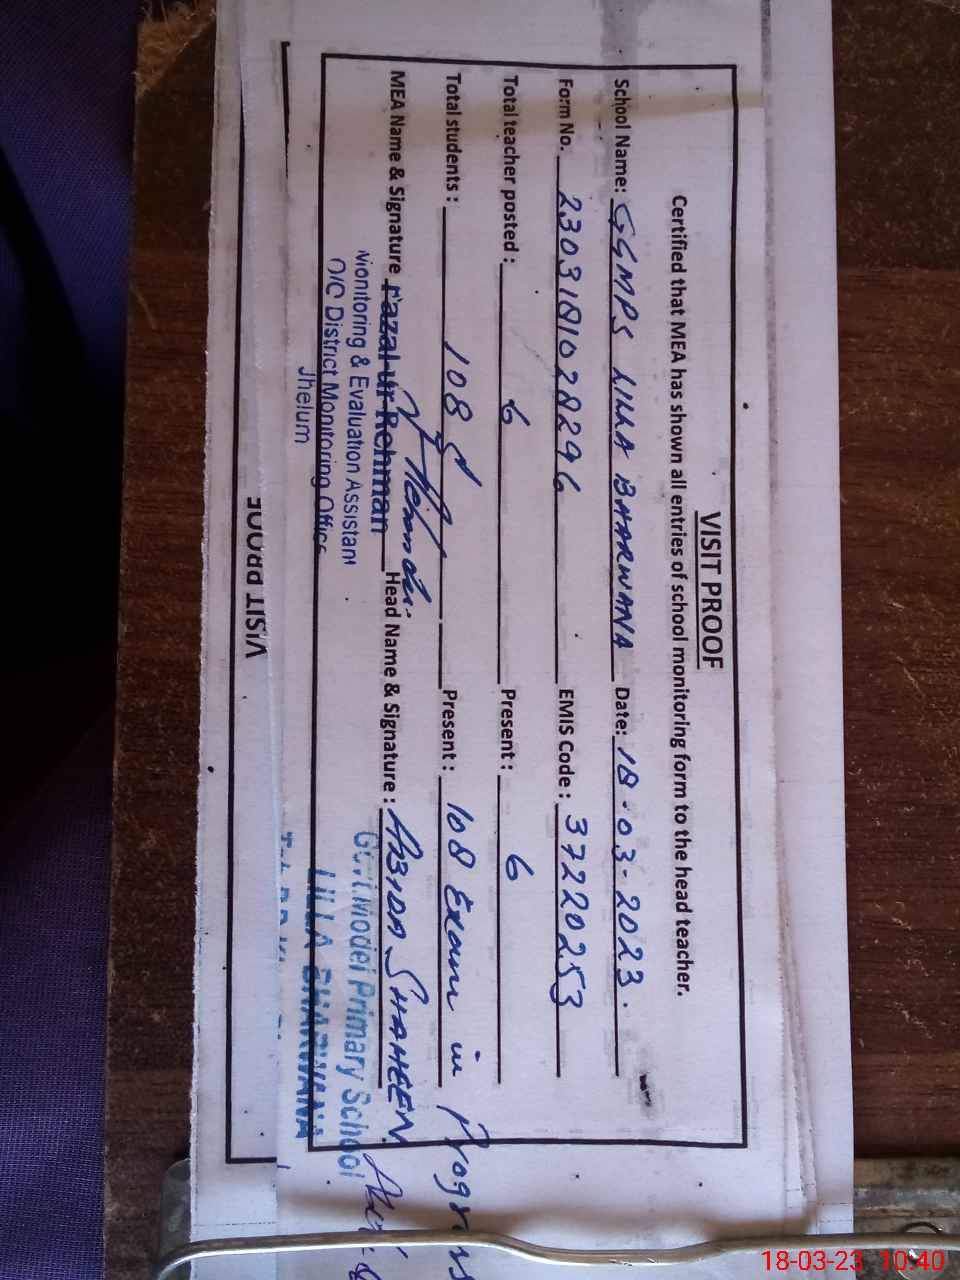 VISIT PROOF
Certified that MEA has shown all entries of school monitoring form to the head teacher.
School Name: GGMPS LILLA BHARWANA Date: 18-03-2023.
Form No. 2303181028296 EMIS Code : 37220253
Total teacher posted : 6 Present : 6
Total students : 108 Present : 108 Exam in Progress
MEA Name & Signature Fazal-ur-Rehman Head Name & Signature : ABIDA SHAHEEN
Monitoring & Evaluation Assistant
O/O District Monitoring Office
Jhelum
Govt. Model Primary School
LILLA BHARWANA
VISIT PROOF
18-03-23 10:40